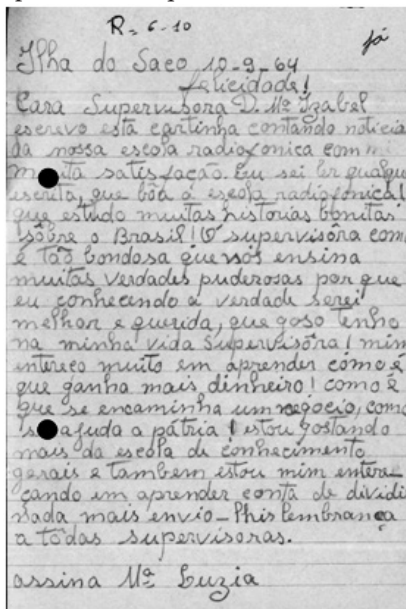 R= 6-10
já
Ilha do Saco 10-9-64
felicidade!
Cara Supervisora D. Mª Izabel
escrevo esta cartinha contando noticia
da nossa escola radiofonica com
satisfação. Eu sei ler qualque
escrita, que bôa é escola radiofonica!
que estudo muitas historias bonitas
sôbre o Brasil! Ó supervisôra com
é tão bondosa que nós ensina
muitas verdades puderosas por que
eu conhecendo a verdade serei
melhor e querida, que goso tenho
na minha vida Supervisôra! mim
entereço muito em aprender como é
que ganha mais dinheiro! como é
que se encaminha um negócio, como
ajuda a pátria! estou gostando
mais da escola de conhecimento
gerais e tambem estou mim entere
çando em aprender conta de dividi
nada mais envio - lhis lembrança
a todas supervisoras.
assina Mª Luzia